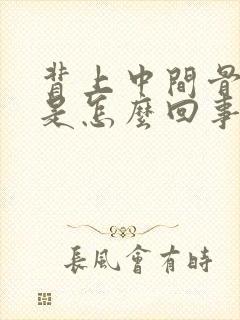 背上中間骨
是怎麼回事
長風會有時